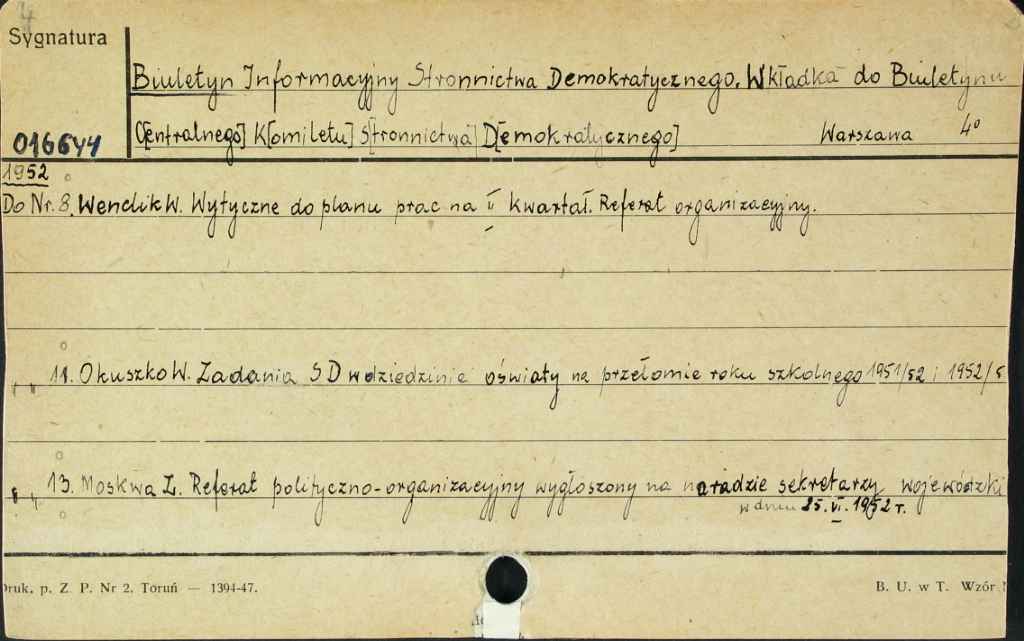 4
Sygnatura
Biuletyn Informacyjny Stronnictwa Demokratycznego. Wkładka do Biuletynu
016644 C[entralnego] K[omitetu] S[tronnictwa] D[emokratycznego] Warszawa 4°
1952
Do Nr. 8. Wendlik W. Wytyczne do planu prac na II kwartał. Referat organizacyjny.
" " 11. Okuszko W. Zadania SD w dziedzinie oświaty na przełomie roku szkolnego 1951/52 i 1952/5
" " 13. Moskwa Z. Referat polityczno-organizacyjny wygłoszony na naradzie sekretarzy wojewódzki
w dniu 25. VI. 1952 r.
Druk. p. Z. P. Nr 2. Toruń — 1394-47. B. U. w T. Wzór